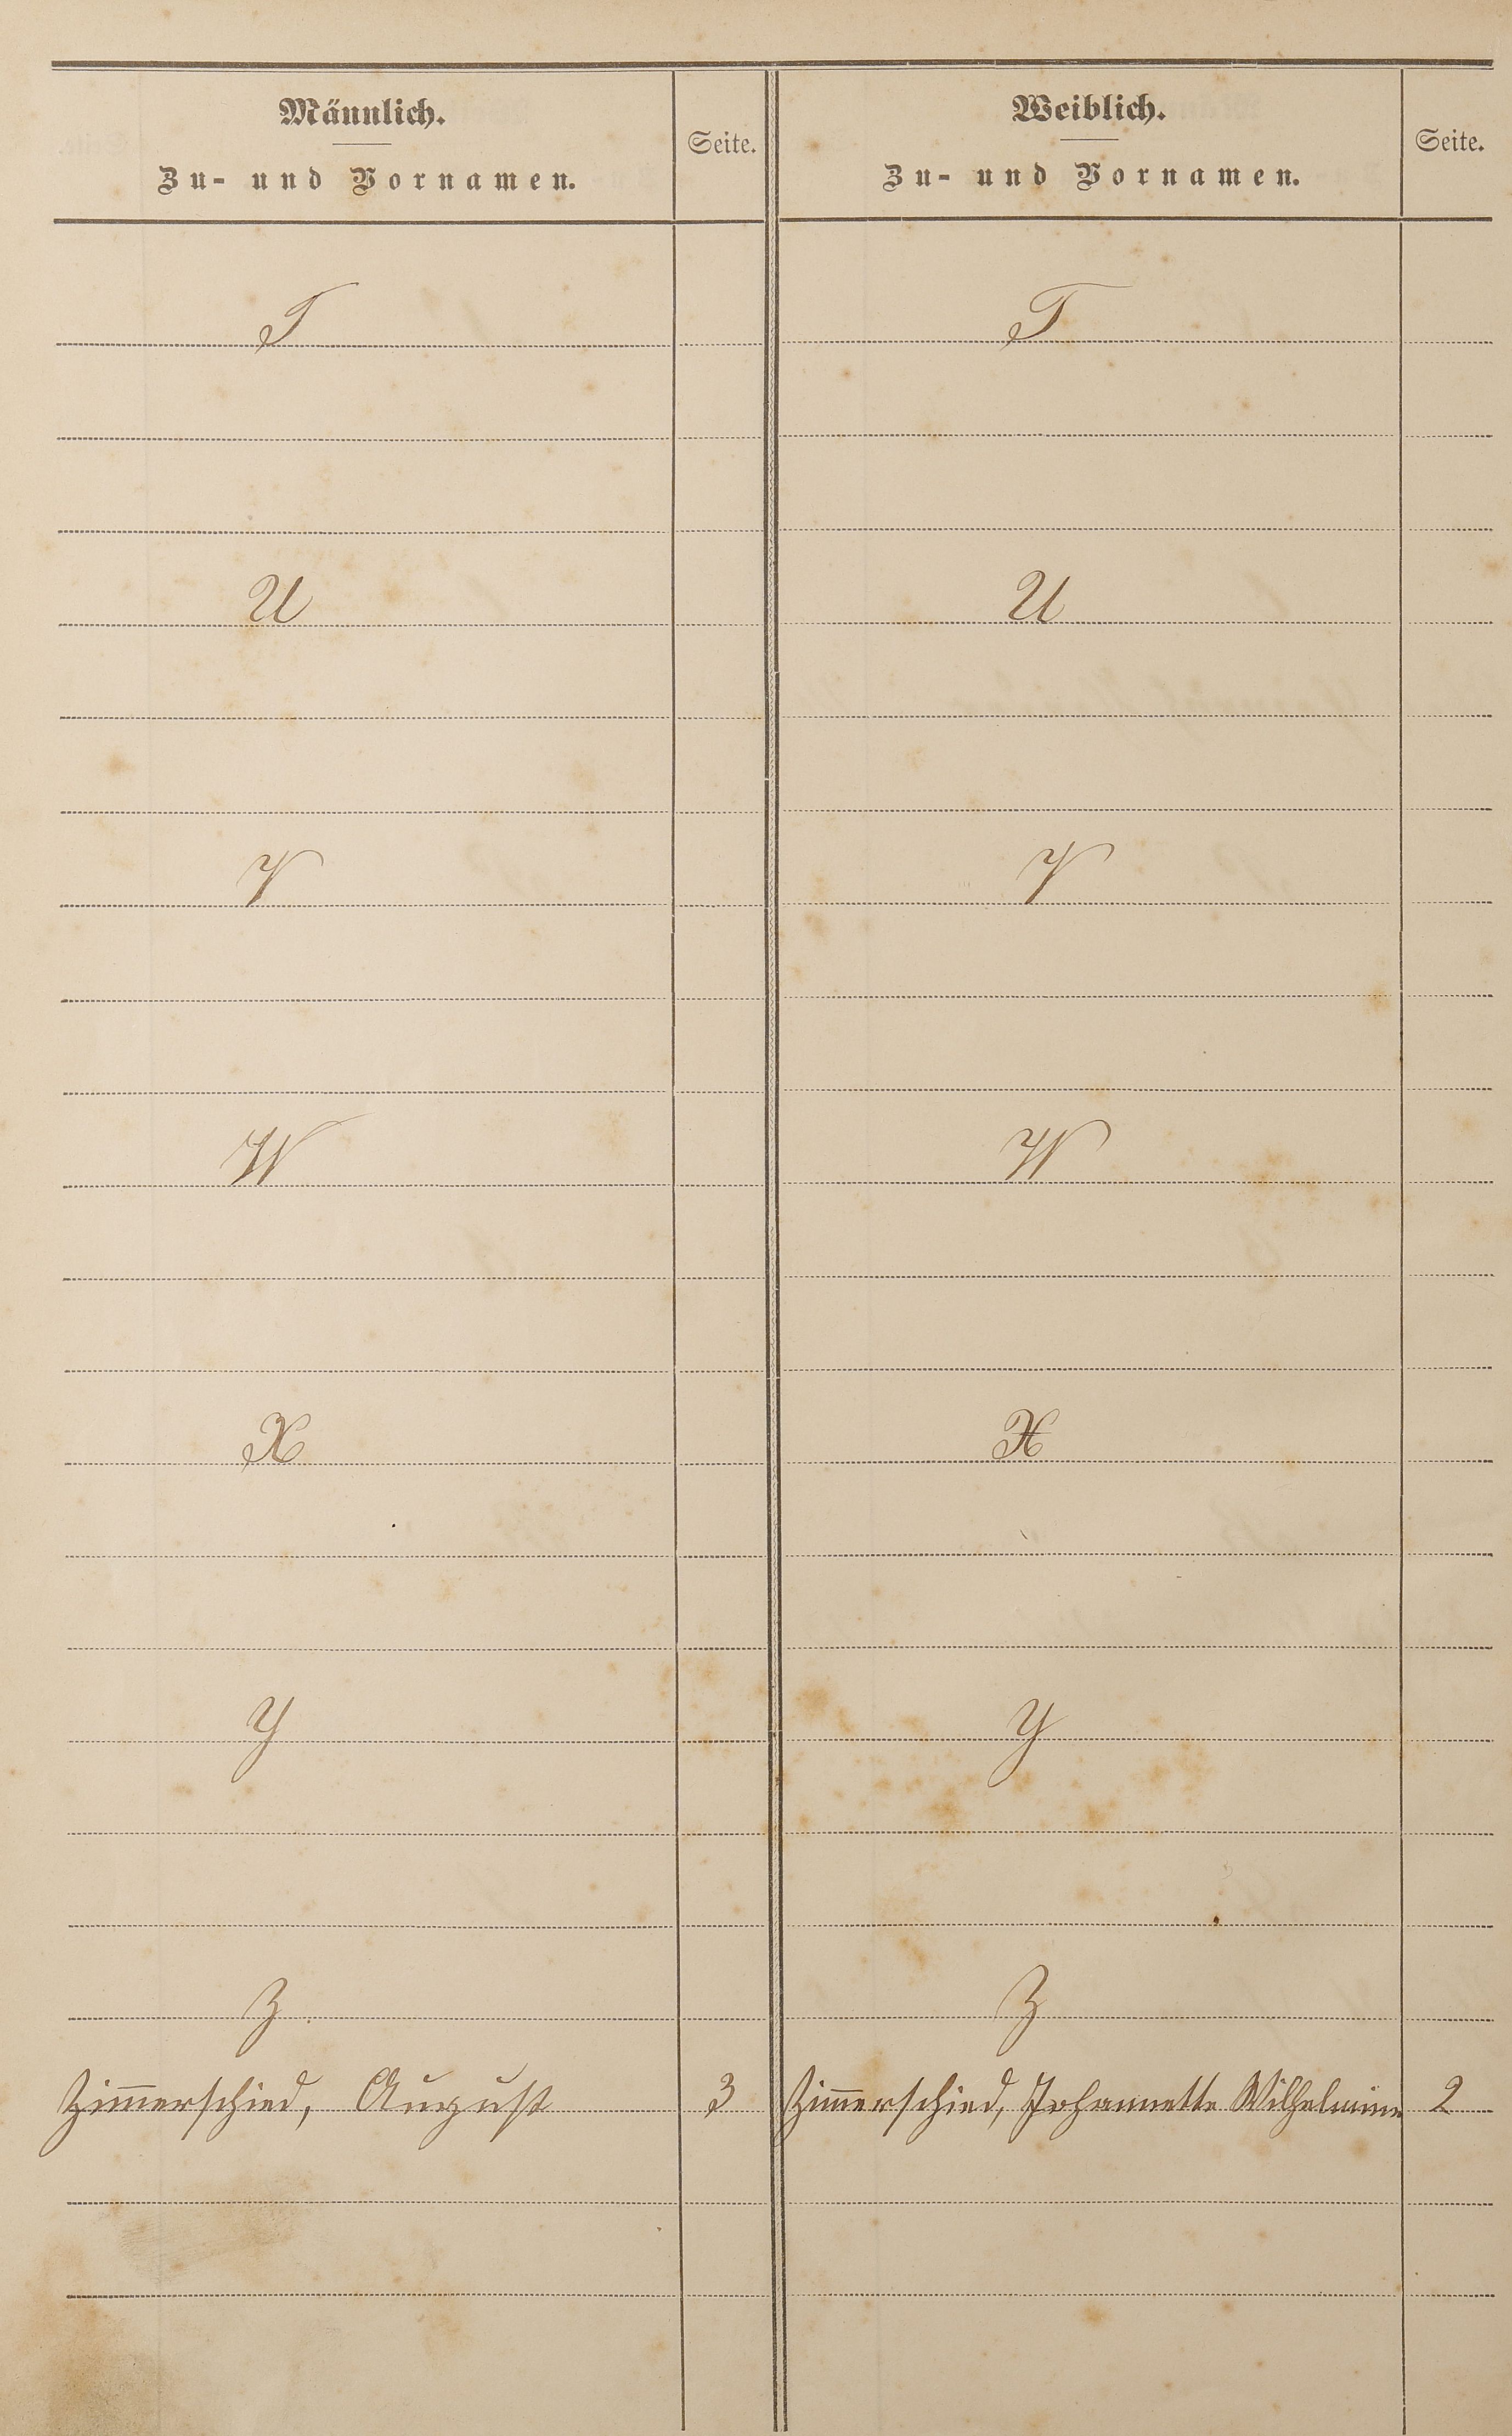 Männlich.
Zu- und Vornamen.
Seite.
Weiblich.
Zu- und Vornamen.
Seite.
T
T
U
U
V
V
W
W
X
X
Y
Y
Z
Z
Zim̅erschied, August 3
Zim̅erschied, Johannette Wilhelmine 2